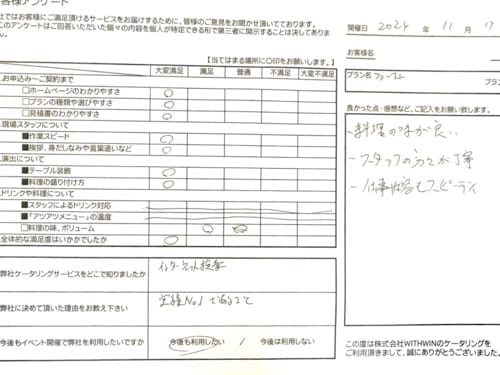 客様アンケート
社ではお客様にご満足頂けるサービスをお届けするために、皆様のご意見をお聞かせ頂いております。
このアンケートはご回答いただいた個々の内容を個人が特定できる形で第三者に開示することは決してありま
【当てはまる場所に○印をお願いします。】
大変満足 満足 普通 不満足 大変不満足
お申込み～ご契約まで
□ホームページのわかりやすさ
□プランの種類や選びやすさ
□見積書のわかりやすさ
現場スタッフについて
■作業スピード
■挨拶、身だしなみや言葉遣いなど
演出について
■テーブル装飾
■料理の盛り付け方
ドリンクや料理について
■スタッフによるドリンク対応
■『アツアツメニュー』の温度
□料理の味、ボリューム
全体的な満足度はいかがでしたか
弊社ケータリングサービスをどこで知りましたか
インターネット検索
弊社に決めて頂いた理由をお教え下さい
実績No.1であること
今後もイベント開催で弊社を利用したいですか
今後も利用したい / 今後は利用しない
開催日 2024 年 11 月 7
お客様名
プラン名
プラン
良かった点・感想など、ご記入をお願い致します。
- 料理の味が良い
- スタッフの方々が丁寧
- 仕事内容もスピーディ
この度は株式会社WITHWINのケータリングを
ご利用頂きまして、誠にありがとうございました。